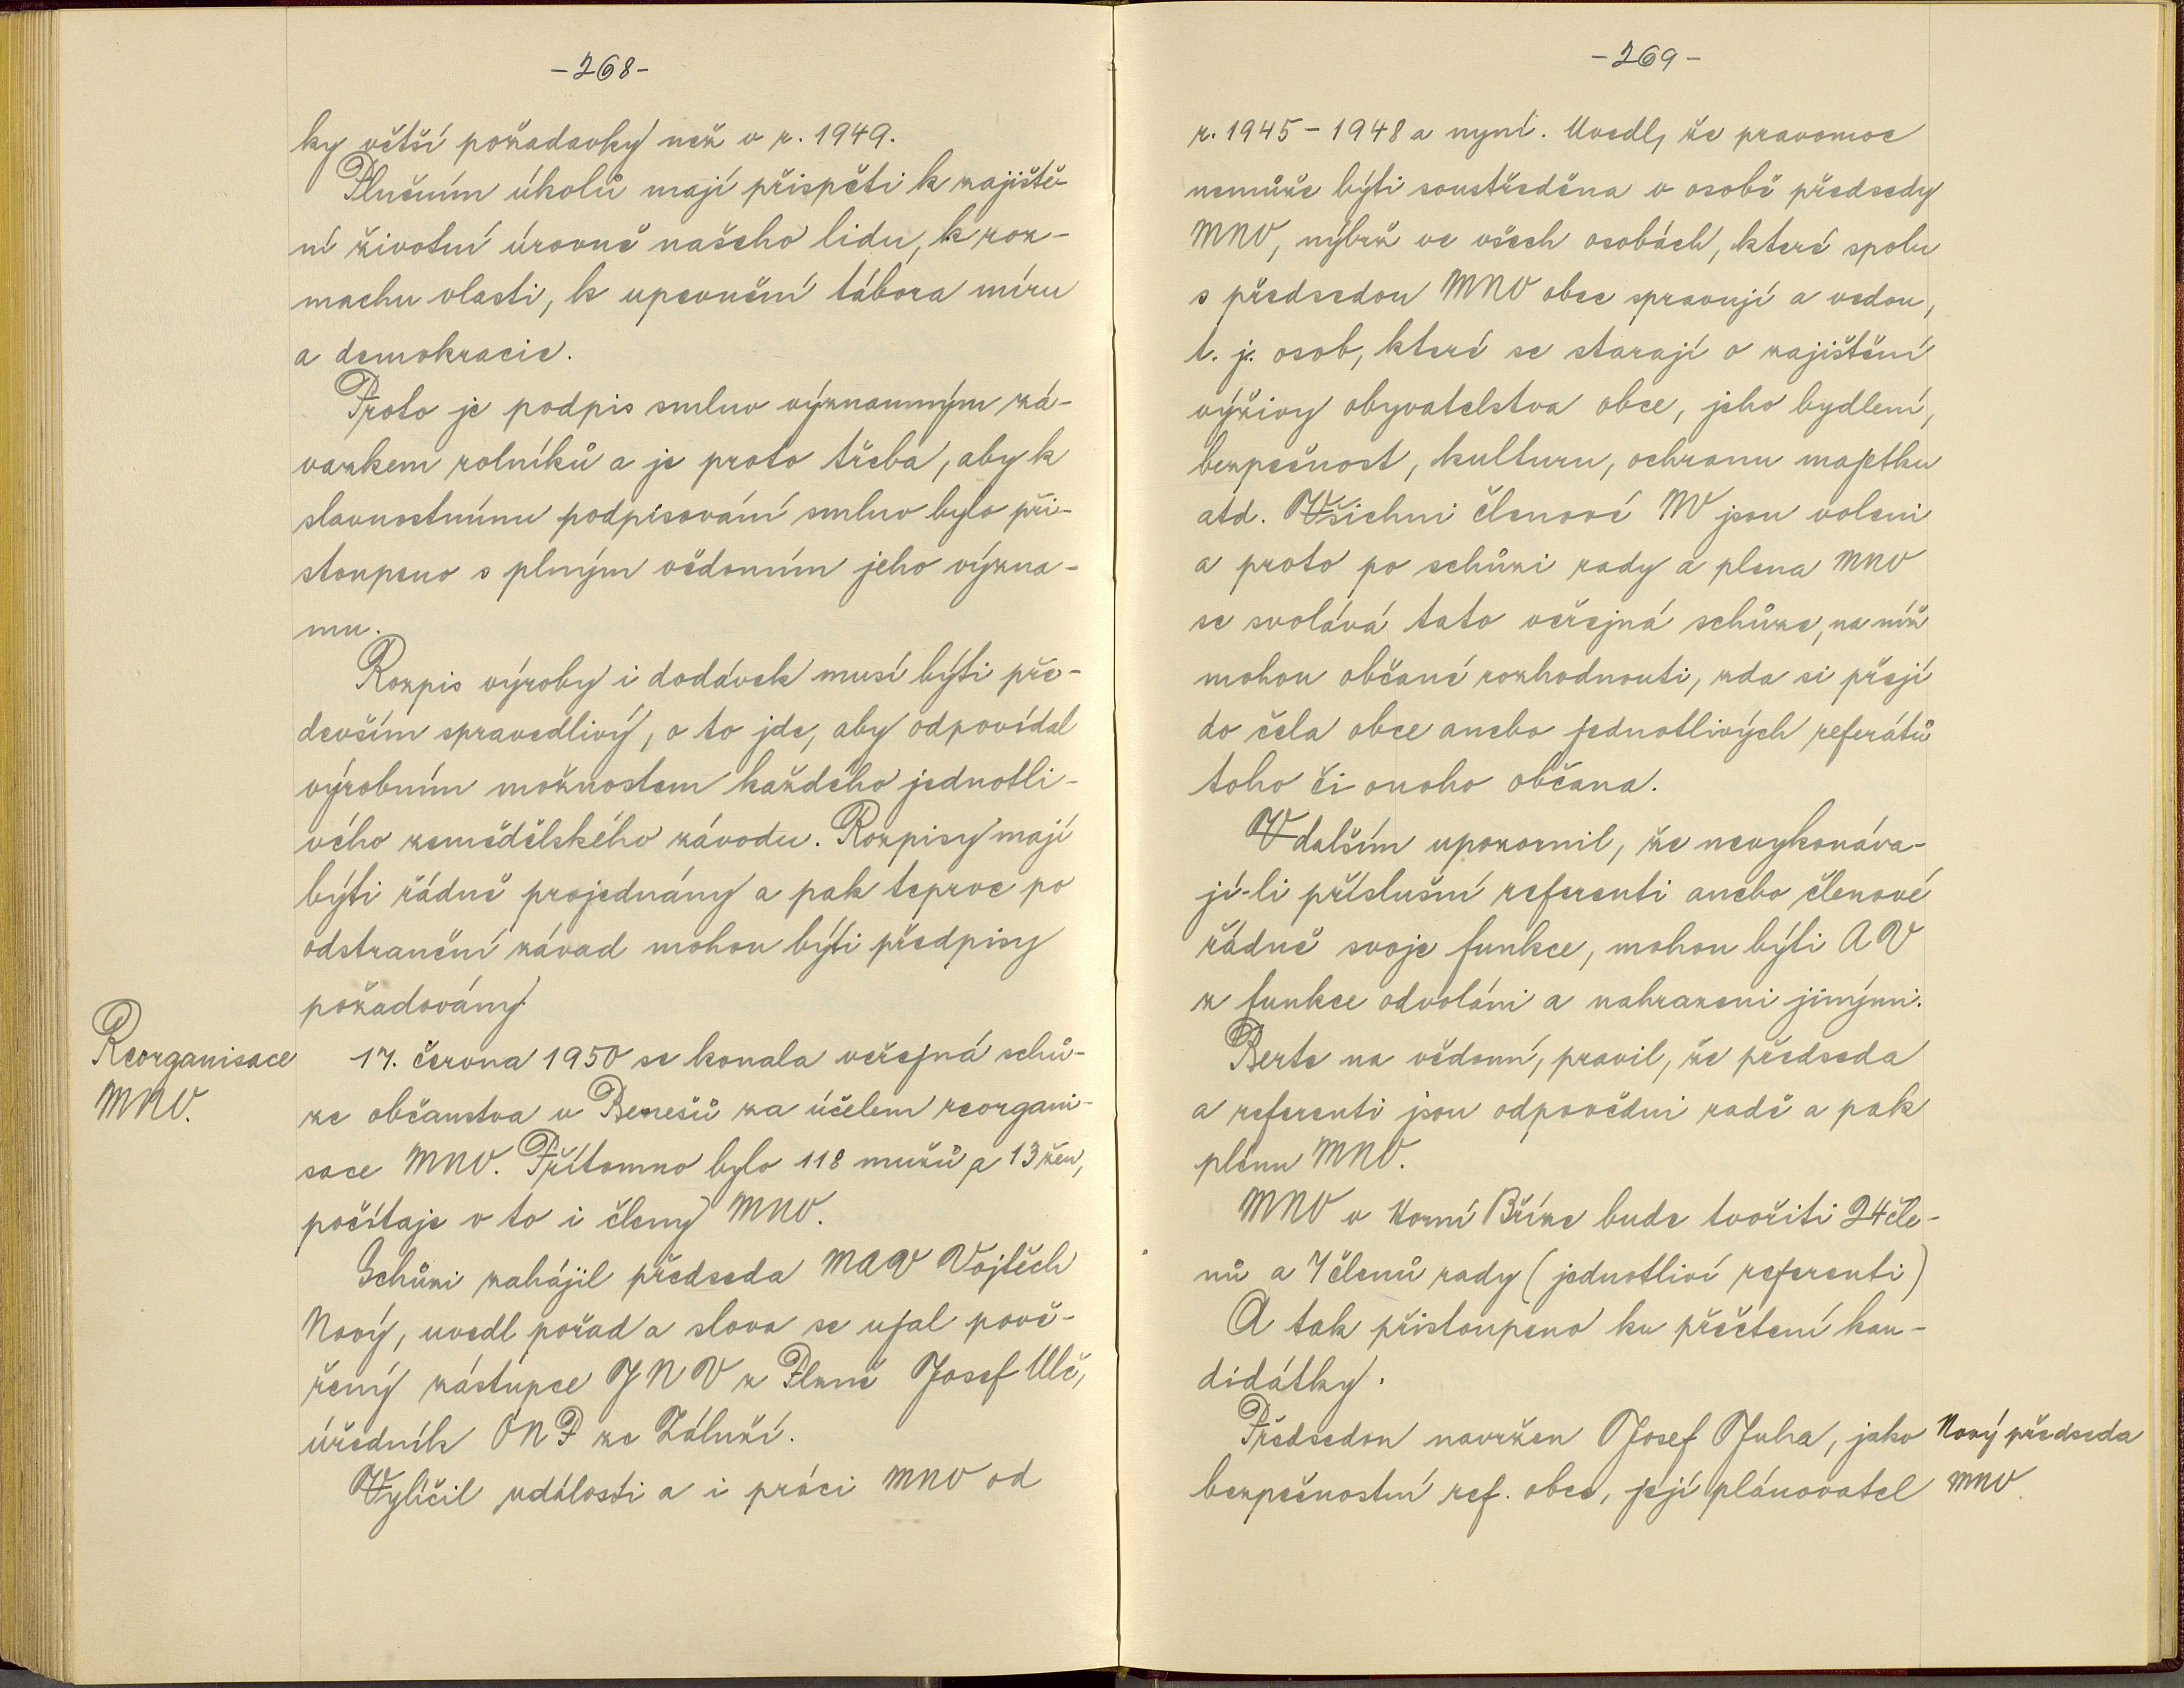 -268-
ky větší požadavky než v r. 1949.
Plněním úkolů mají přispěti k zajiště-
ní životní úrovně našeho lidu, k roz-
machu vlasti, k upevnění tábora míru
a demokracie.
Proto je podpis smluv významným zá-
vazkem rolníků a je proto třeba, aby k
slavnostnímu podpisování smluv bylo při-
stoupeno s plným vědomím jeho význa-
mu.
Rozpis výroby i dodávek musí býti pře-
devším spravedlivý, o to jde, aby odpovídal
výrobním možnostem každého jednotli-
vého zemědělského závodu. Rozpisy mají
býti řádně projednány a pak teprve po
odstranění závad mohou býti předpisy
požadovány.
Reorganisace
MNV.
17. června 1950 se konala veřejná schů-
ze občanstva u Benešů za účelem reorgani-
sace MNV. Přítomno bylo 118 mužů a 13 žen,
počítaje v to i členy MNV.
Schůzi zahájil předseda MAV Vojtěch
Nový, uvedl pořad a slova se ujal pově-
řený zástupce JNV z Plzně Josef Ulč,
úředník ONP ze Záluží.
Vylíčil události a i práci MNV od
-269-
r. 1945 - 1948 a nyní. Uvedl, že pravomoc
nemůže býti soustředěna v osobě předsedy
MNV, nýbrž ve všech osobách, které spolu
s předsedou MNV obec spravují a vedou,
t. j. osob, které se starají o zajištění
výživy obyvatelstva obce, jeho bydlení,
bezpečnost, kulturu, ochranu majetku
atd. Všichni členové NV jsou voleni
a proto po schůzi rady a plena MNV
se svolává tato veřejná schůze, na níž
mohou občané rozhodnouti, zda si přejí
do čela obce anebo jednotlivých referátů
toho či onoho občana.
V dalším upozornil, že nevykonáva-
jí-li příslušní referenti anebo členové
řádně svoje funkce, mohou býti AV
z funkce odvoláni a nahrazeni jinými.
Berte na vědomí, pravil, že předseda
a referenti jsou odpovědni radě a pak
plénu MNV.
MNV v Horní Bříze bude tvořiti 24 čle-
nů a 7 členů rady (jednotliví referenti)
A tak přistoupeno ku přečtení kan-
didátky.
Předsedou navržen Josef Juha, jako
bezpečnostní ref. obce, její plánovatel
Nový předseda
MNV.